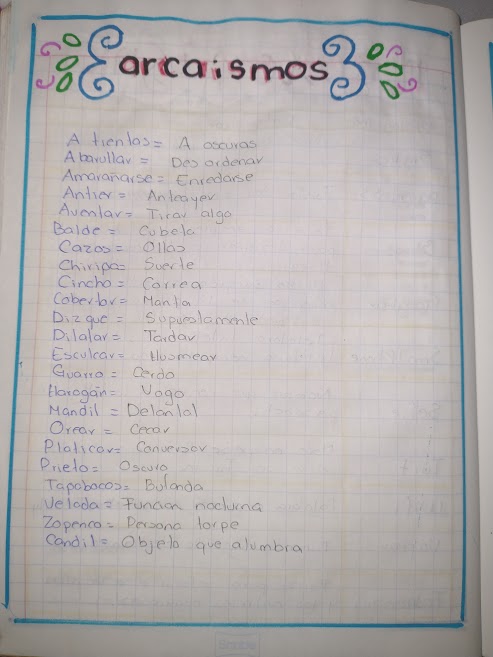 arcaismos
A tientas = A oscuras
Abarullar = Desordenar
Amarañarse = Enredarse
Antier = Anteayer
Aventar = Tirar algo
Balde = Cubeta
Cazos = Ollas
Chiripa = Suerte
Cincho = Correa
Cobertor = Manta
Dizque = Supuestamente
Dilatar = Tardar
Esculcar = Husmear
Guarro = Cerdo
Haragán = Vago
Mandil = Delantal
Orear = Cecar
Platicar = Conversar
Prieto = Oscuro
Tapabocas = Bufanda
Velada = Función nocturna
Zopenco = Persona torpe
Candil = Objeto que alumbra
Scribe